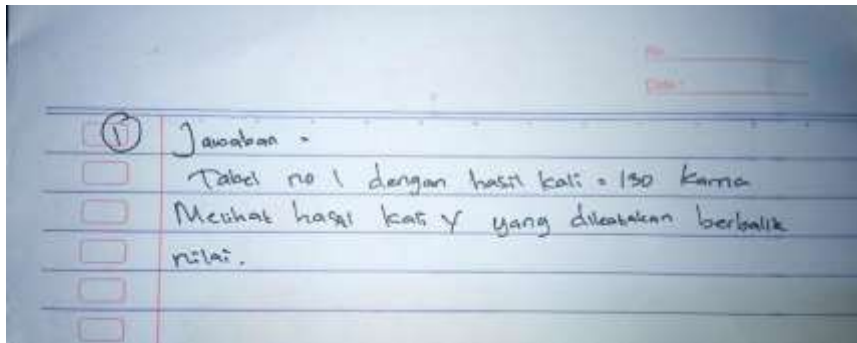 No
Date
1
Jawaban =
Tabel no 1 dengan hasil kali = 150 karna
Melihat hasil kali y yang dikatakan berbalik
nilai.